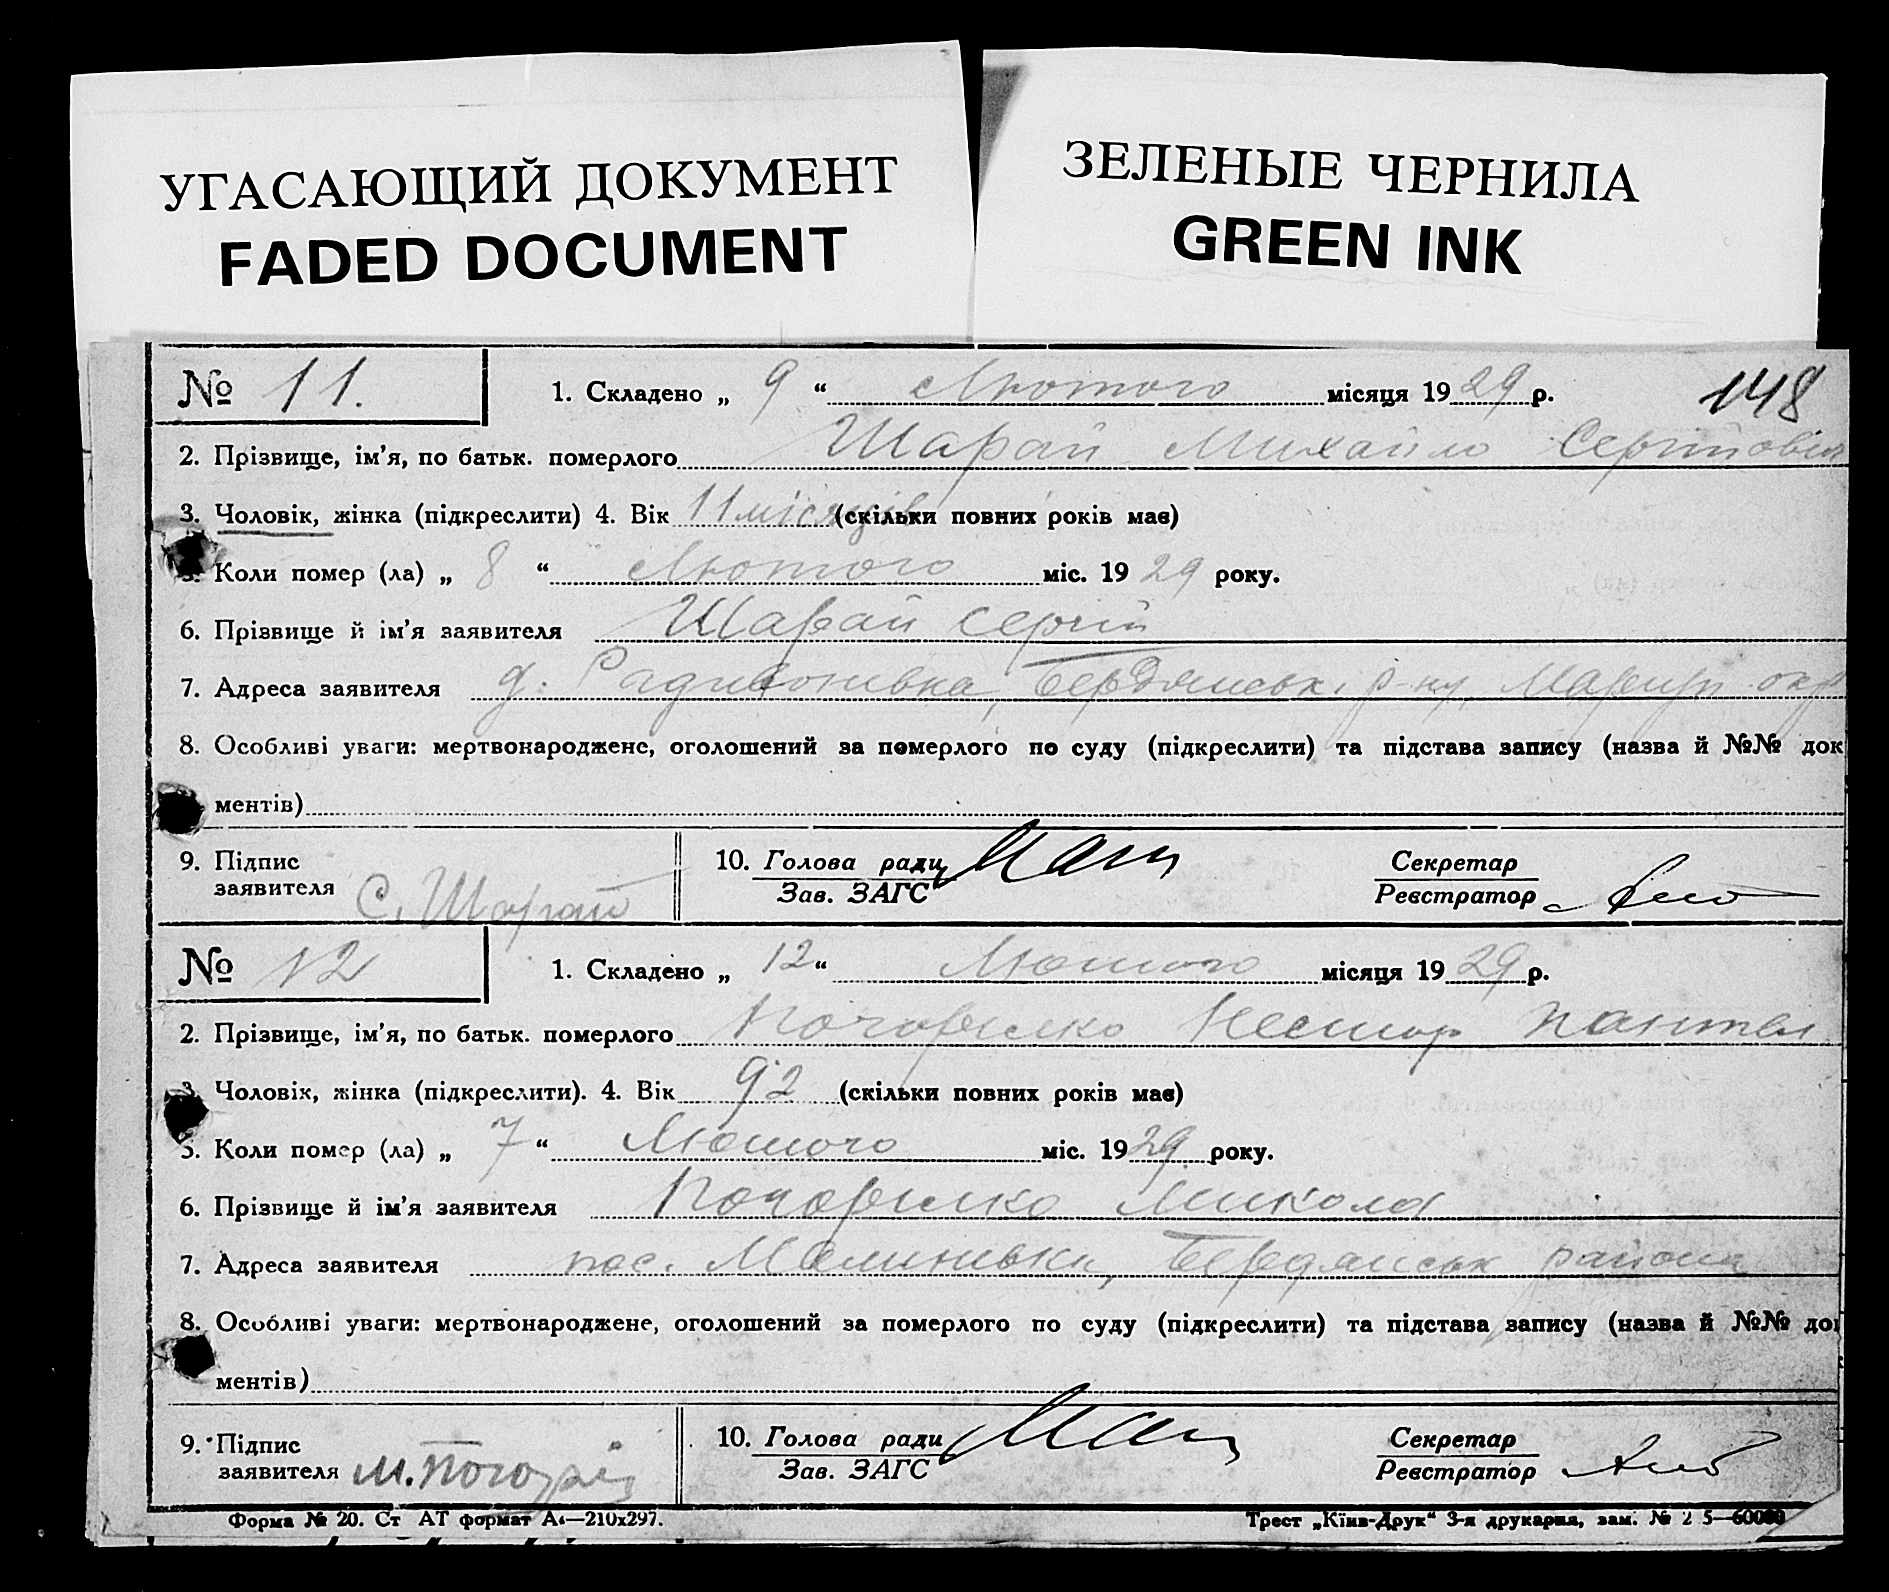 УГАСАЮЩИЙ ДОКУМЕНТ
FADED DOCUMENT
ЗЕЛЕНЫЕ ЧЕРНИЛА
GREEN INK
148
№ 11. 1. Складено „ 9 “ Лютого місяця 1929 р.
2. Прізвище, ім’я, по батьк. померлого Шарай Михайло Сергійович
3. Чоловік, жінка (підкреслити) 4. Вік 11 місяців (скільки повних років має)
5. Коли помер (ла) „ 8 “ Лютого міс. 1929 року.
6. Прізвище й ім’я заявителя Шарай Сергій
7. Адреса заявителя д. Радивонівка, Бердянськ. р-ну, Маріуп окр
8. Особливі уваги: мертвонароджене, оголошений за померлого по суду (підкреслити) та підстава запису (назва й №№ док
ментів)
9. Підпис заявителя С. Шарай
10. Голова ради
Зав. ЗАГС
Секретар
Реєстратор
№ 12 1. Складено „ 12 “ Лютого місяця 1929 р.
2. Прізвище, ім’я, по батьк. померлого Нестор
3. Чоловік, жінка (підкреслити). 4. Вік 92 (скільки повних років має)
5. Коли помер (ла) „ 7 “ Лютого міс. 1929 року.
6. Прізвище й ім’я заявителя Микола
7. Адреса заявителя пос. Малинівки, Бердянськ району
8. Особливі уваги: мертвонароджене, оголошений за померлого по суду (підкреслити) та підстава запису (назва й №№ док
ментів)
9. Підпис заявителя М.
10. Голова ради
Зав. ЗАГС
Секретар
Реєстратор
Форма № 20. Ст АТ формат А4—210x297.
Трест „Київ-Друк“ 3-я друкарня, зам. №